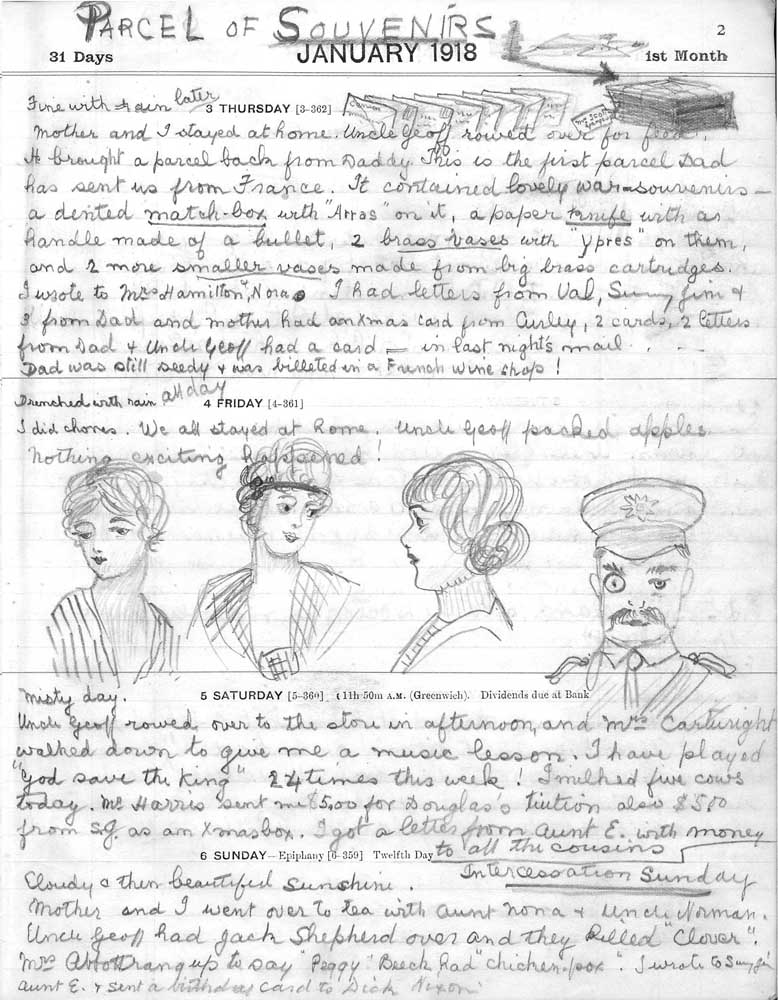 PARCEL OF SOUVENIRS
2
31 Days JANUARY 1918 1st Month
Fine with rain later 3 THURSDAY [3-362]
Mother and I stayed at home. Uncle Geoff rowed over for feed.
He brought a parcel back from Daddy. This is the first parcel Dad
has sent us from France. It contained lovely war-souvenirs –
a dented match-box with "Arras" on it, a paper knife with a
handle made of a bullet, 2 brass vases with "Ypres" on them,
and 2 more smaller vases made from big brass cartridges.
I wrote to Mrs Hamilton, Nora I had letters from Val, Sunny Jim &
3 from Dad and mother had an Xmas card from Curley, 2 cards, 2 letters
from Dad & Uncle Geoff had a card – in last night's mail.
Dad was still seedy & was billeted in a French wine shop!
Drenched with rain all day 4 FRIDAY [4-361]
I did chores. We all stayed at home. Uncle Geoff packed apples.
Nothing exciting happened!
Misty day. 5 SATURDAY [5-360] 11h 50m A.M. (Greenwich). Dividends due at Bank
Uncle Geoff rowed over to the store in afternoon, and Mrs Cartwright
walked down to give me a music lesson. I have played
"God save the King" 24 times this week! I milked five cows
today. Mr Harris sent me $5.00 for Douglas's tuition also $5.00
from S.J. as an Xmas box. I got a letter from Aunt E. with money
to all the cousins
6 SUNDAY–Epiphany [6-359] Twelfth Day
Intercession Sunday
Cloudy & then beautiful sunshine.
Mother and I went over to tea with Aunt Nona & Uncle Norman.
Uncle Geoff had Jack Shepherd over and they killed "Clover".
Mrs Abbott rang up to say "Peggy" Beech had "chicken-pox". I wrote to Sunny Jim
Aunt E. & sent a birthday card to Dick Nixon